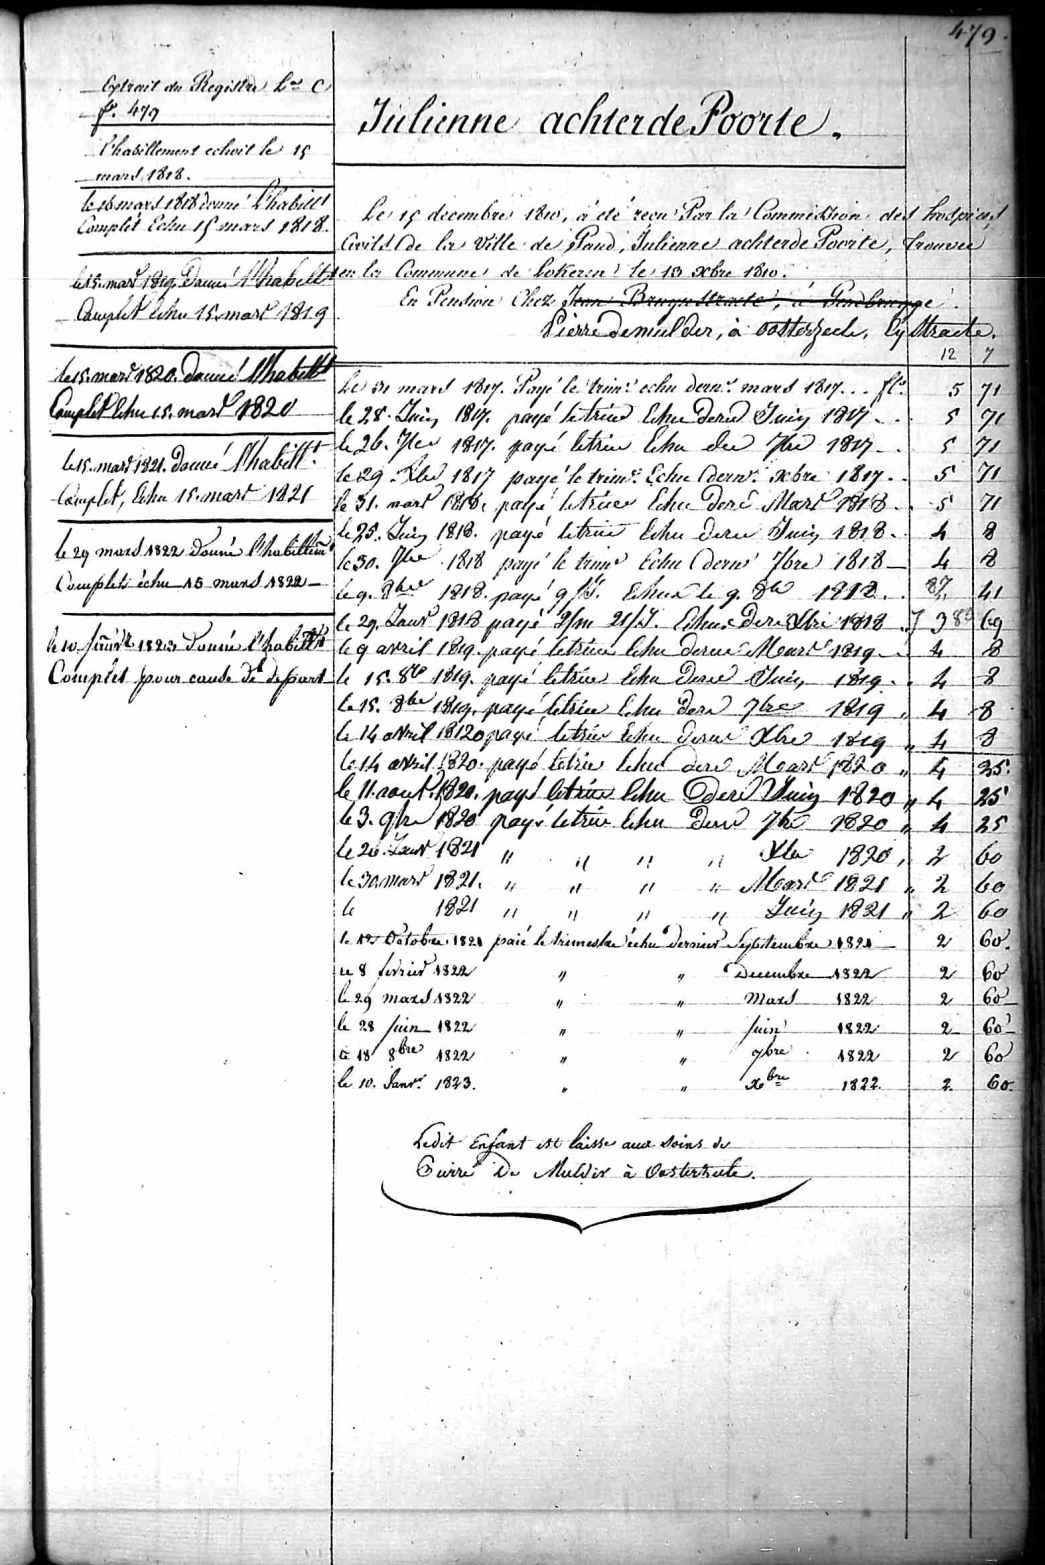 479.
Extrait du Registre Lre C
fo. 479
l'habillement echoit le 15
mars 1818.
le 16 mars 1818 donné l'habillt
Complet Echu 15 mars 1818.
le 15. mars 1819. Donné l'habillt
Complet Echu 15. mars 1819
le 15. mars 1820. donné l'habillt
Complet Echu 15. mars 1820
le 15. mars 1821. Donné l'habillt.
Complet, Echu 15. mars 1821
le 29 mars 1822 Donné l'habillem
Complets échu 15 mars 1822
le 10 1823 Donné l'habillt
Complèt pour cause de depart
Julienne achterdePoorte.
Le 15 decembre 1810, a été recu Par la Commission des hospices
Civils de la Ville de Gand, Julienne achterde Poorte, trouvée
en la Commune de Lokeren le 13 xbre 1810.
En Pension Chez Jean Bruynstraete, à Gendbrugge.
Pierre demulder, à oosterzeele, Lystraete.
12 7
Le 31 mars 1817. Payé le trimt. echu dernr. mars 1817... fls. 5 71
le 28. Juin 1817. payé le trim Echu dernr Juin 1817. . 5 71
le 26. 7bre 1817. payé le trim Echu der 7bre 1817. . 5 71
le 29. Xbre 1817 payé le trimt. Echu dernr. xbre 1817. . 5 71
le 31. mars 1818. payé le trim Echu derr Mars 1818. . 5 71
le 25. Juin 1818. payé le trim Echu derr Juin 1818. . 4 8
le 30. 7bre 1818 payé le trimr Echu dernr 7bre 1818 4 8
le 9. 8bre 1818. payé 9/J. Echus le 9. 8bre 1818. . 87 41
le 29. Janr 1818 payé 2/m 21/J. Echus Derr Xbre 1818 3 69
le 9 avril 1819. payé le trim Echu derr Mars 1819. . 4 8
le 15. 8bre 1819. payé le trim Echu Derr Juin 1819. " 4 8
le 15. 8bre 1819. payé le trim Echu Derr 7bre 1819 " 4 8
le 14 avril 1820 payé le trim Echu derr Xbre 1819 " 4 8
le 14 avril 1820. payé le trim Echu derr Mars 1820 " 4 25.
le 11. aout. 1820. payé le trim Echu Derr Juin 1820 " 4 25
le 3. 9bre 1820 payé le trim Echu Derr 7bre 1820 " 4 25
le 26. Janr 1821 " " " " Xbre 1820 " 2 60
le 30. mars 1821. " " " " Mars 1821 " 2 60
le 1821 " " " " Juin 1821 " 2 60
le 12 Octobre 1821 paié le trimestre échu dernier Septembre 1821 2 60.
le 8 fevrier 1822 " " Decembre 1822 2 60
le 29 mars 1822 " " Mars 1822 2 60
le 28 juin 1822 " " juin 1822 2 60
le 18 8bre 1822 " " 7bre 1822 2 60
le 10. Janr. 1823. " " xbre 1822. 2 60.
Ledit Enfant est laissé aux soins de
Pierre De Mulder à Oosterzeele.